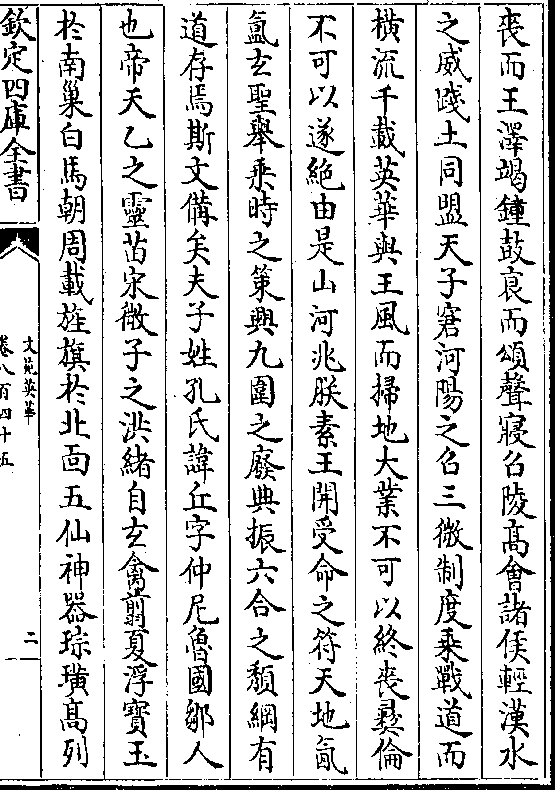 喪而王澤竭鐘鼓衰而頌聲寢召陵高會諸侯輕漢水
之威踐土同盟天子窘河陽之召三微制度乗戰道而
横流千載英華與王風而掃地大業不可以終喪彛倫
不可以遂絶由是山河兆朕素王開受命之符天地氤
氲𤣥聖舉乗時之策興九圍之廢典振六合之頽綱有
道存焉斯文備矣夫子姓孔氏諱丘字仲尼魯國鄒人
也帝天乙之靈苗宋微子之洪緒自𤣥禽翦夏浮寳玉
於南巢白馬朝周載旌旗於北面五仙神器琮璜髙列
欽定四庫全書
文苑英華
卷八百四十五
二